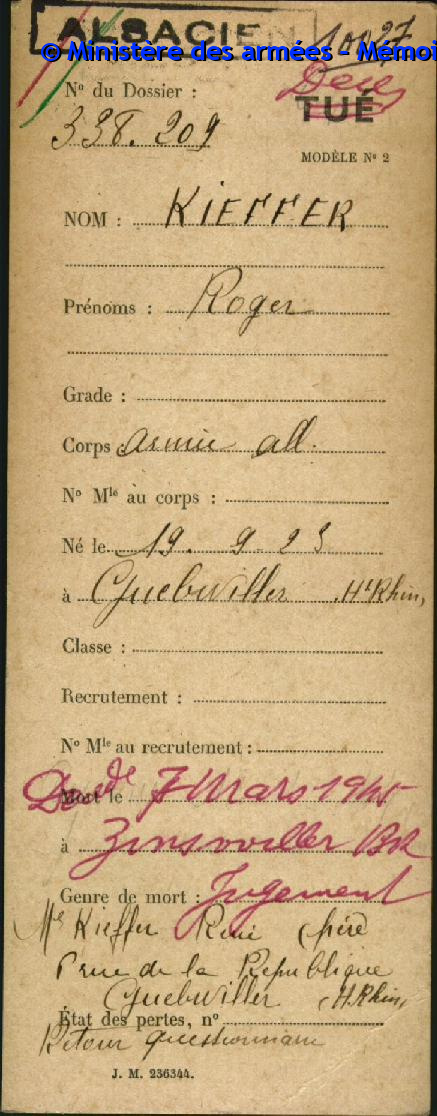 ALSACIEN
10027
© Ministère des armées - Mémoi
N° du Dossier :
Décé
TUÉ
338.209
MODÈLE N° 2
NOM : KIEFFER
Prénoms : Roger
Grade :
Corps armée all.
N° Mle au corps :
Né le 19. 9. 23
à Guebwiller Ht Rhin,
Classe :
Recrutement :
N° Mle au recrutement :
Mort le 7 Mars 1945
à Zinswiller BR
Genre de mort : Jugement
Mr Kieffer René (père
rue de la République
Guebwiller H. Rhin,
État des pertes, n°
Retour questionnaire
J. M. 236344.